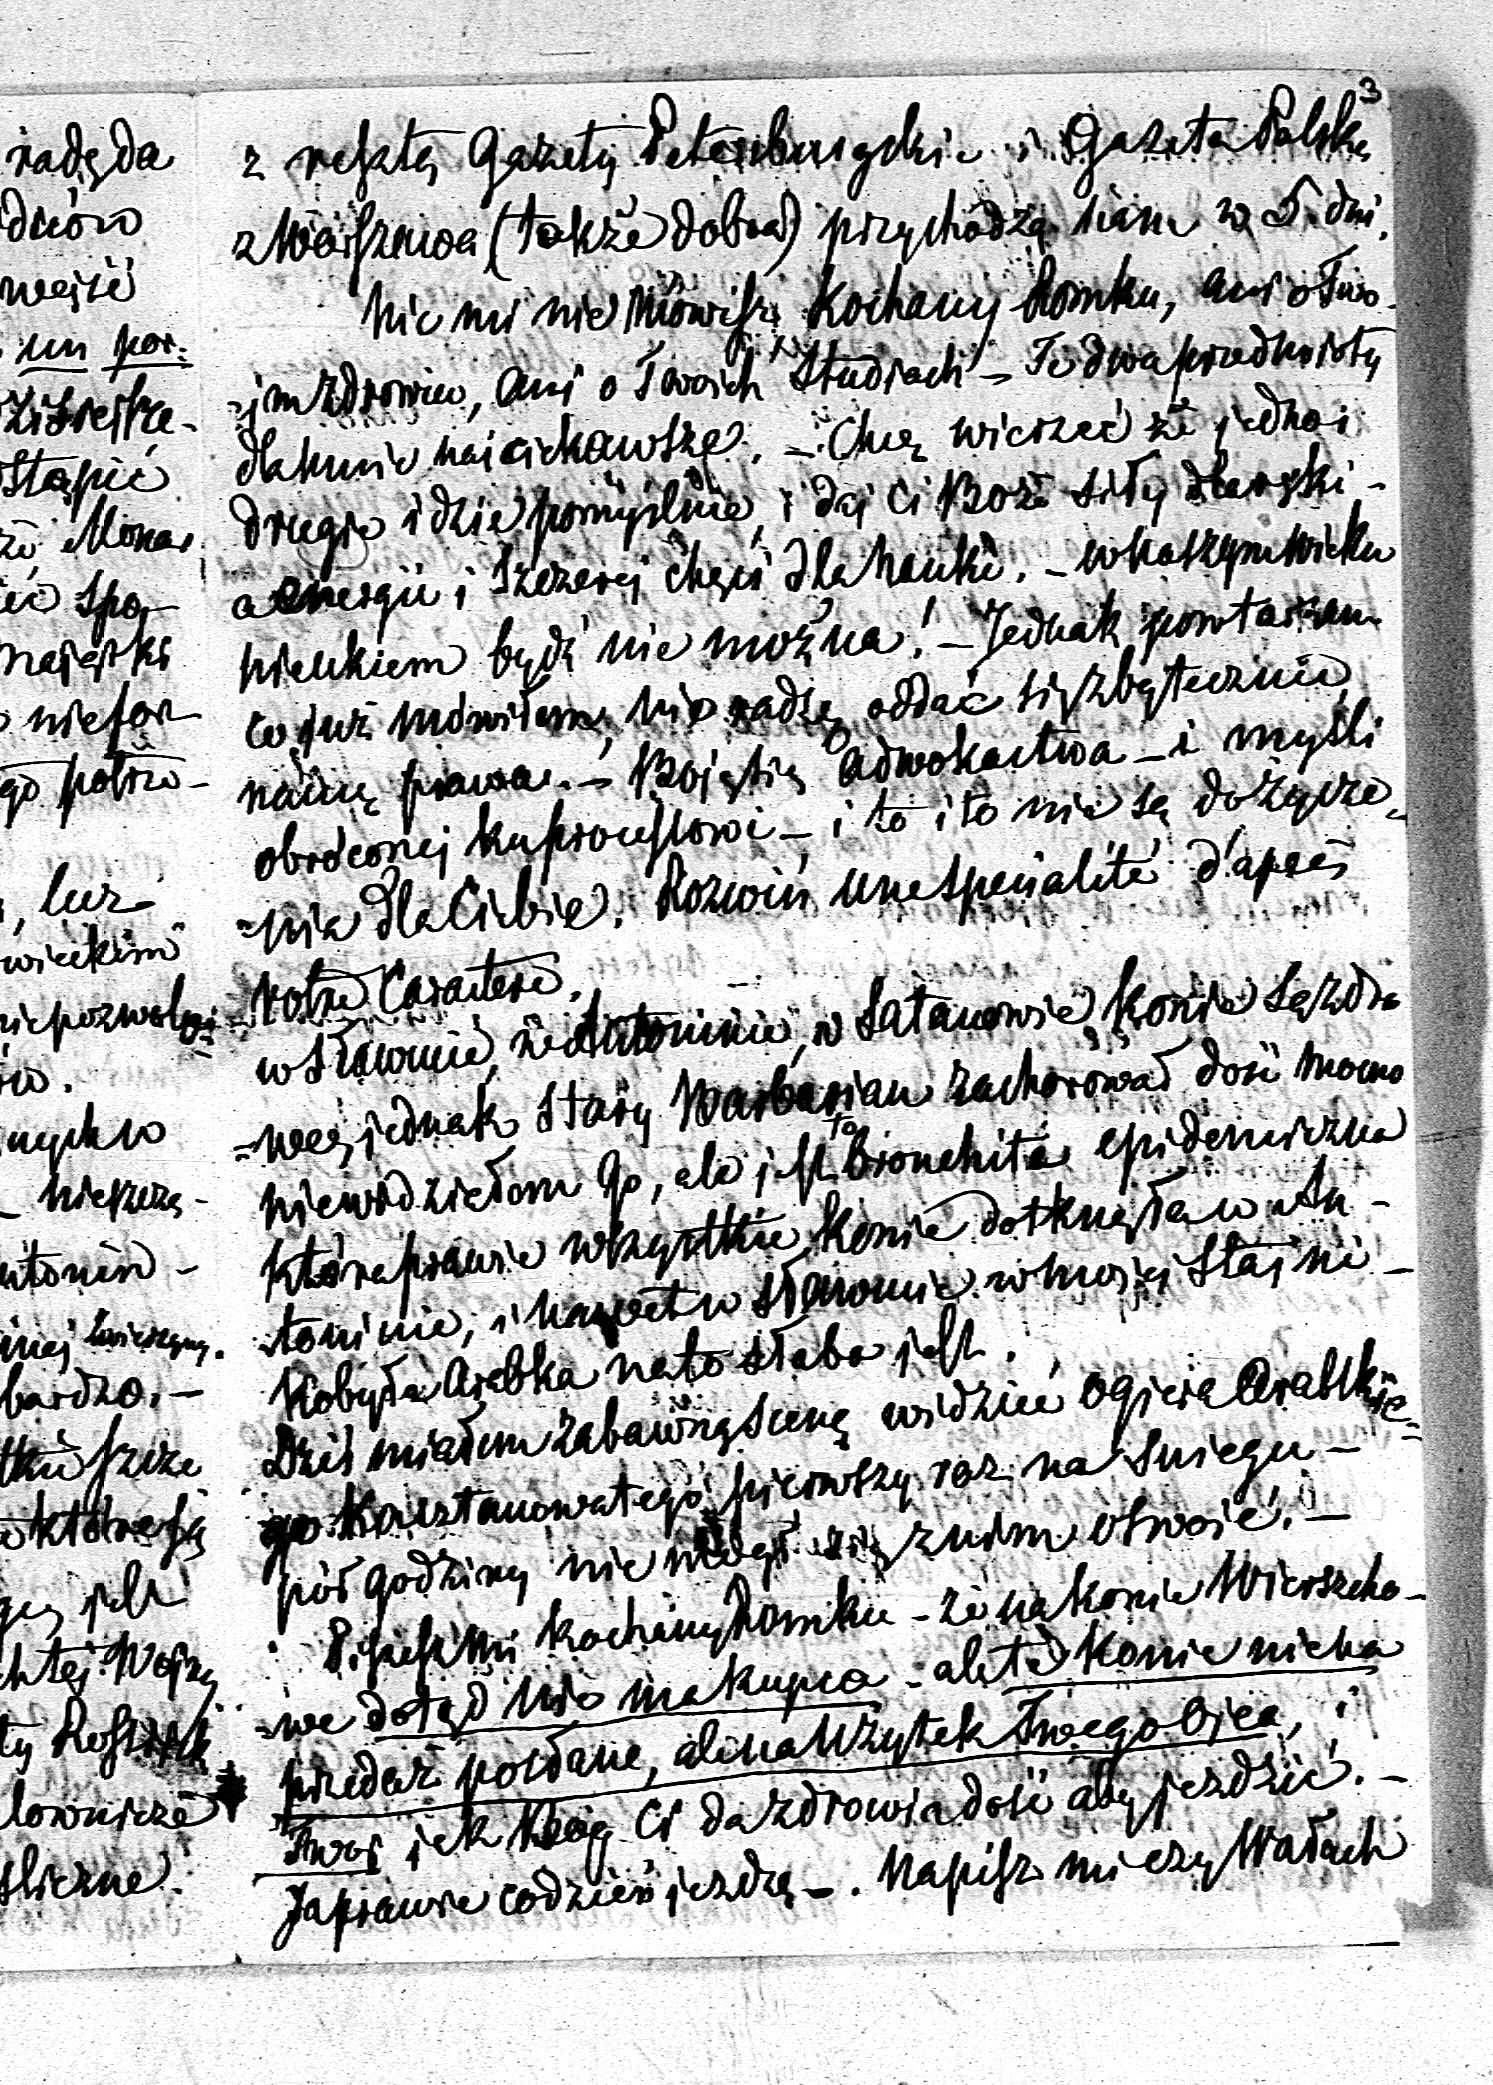 3
z resztą Gazety Petersburgskie i Gazeta Polska
z Warszawa (także dobra) przychodzą nam w 5. dni.
Nic mi nie mówisz Kochany Romku, ani o Two-
-jm zdrowiu, ani o Twoich Studiach – Te dwa przedmioty
dla mnie najciekawsze. – Chcę wierzeć że jedno i
drugie idzie pomyślnie, i daj Ci Boże siły
a energii i szczerej chęci dla Nauki. – w naszym wieku
nieukiem będź nie można! – Jednak powtarzam
co już mówiłem, nie radzę oddać się zbytecznie
nauką prawa. – Boję się Adwokactwa – i myśli
obróconej ku processowi – i to i to nie są do życze-
-nia dla Ciebie. Rozwiń une specialité d'après
votre Caractère.
w Sławucie, w Antoninie, w Satanowie konie są zdro
-we, jednak stary Barbarian zachorował dość mocno
niewidziełom go, ale jest to bronchita epidemiczna
która prawie wszystkie konie dotknęła w An-
-toninie, i nawet w Sławucie w mojej stajni –
Kobyła Arabka na to słaba jest.
Dziś miałem zabawną scenę widzieć ogiera Arabskie-
go Kasztanowatego pierwszy raz na sniegu –
pół godziny nie mógł się z nim oswoić. –
Piszesz mi kochany Romku – że na konie Wierzcho-
-we dotąd nie ma kupca – ale te konie nie na
przedaż posłane, ale na Użytek Twego Ojca, i
Twój jek Bóg Ci da zdrowia dość aby jezdzić. –
Ja prawie codzień jezdzę –. Napisz mi czy Wałach
radę da
dniów
wejść
un por-
stąpić
że, Monar
spo-
majątki
niefor
go potrze-
luz
niepozwala
nych w
nieszczę-
ntonin –
bardzo. –
które są
jest
łownicze
śliczne.